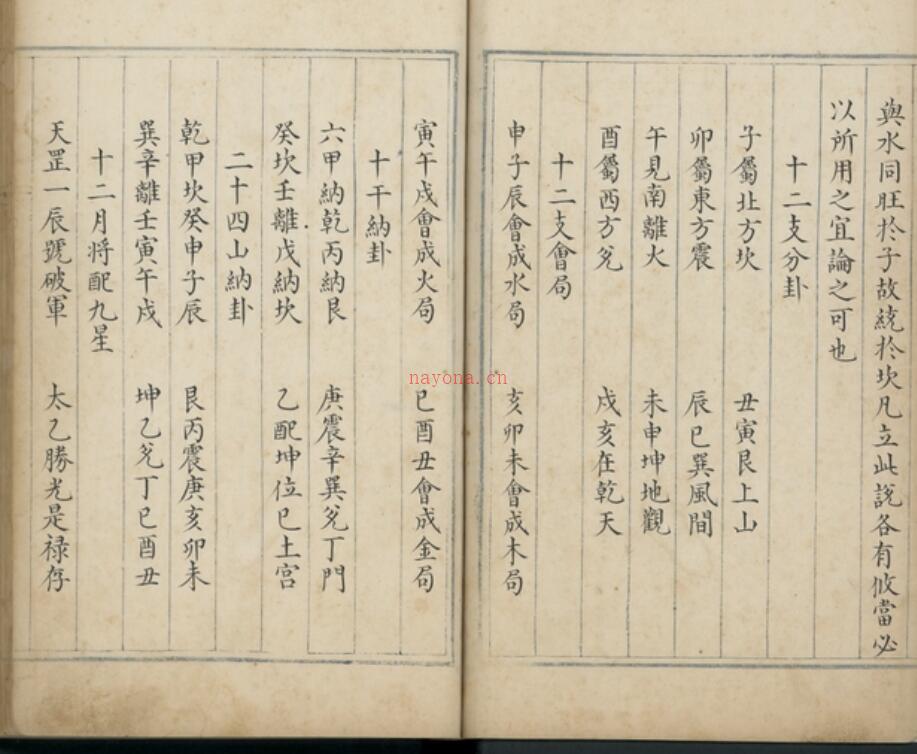 與水同旺於子故統於坎凡立此說各有攸當必
以所用之宜論之可也
十二支分卦
子屬北方坎　丑寅艮上山
卯屬東方震　辰巳巽風間
午見南離火　未申坤地觀
酉屬西方兌　戌亥在乾天
十二支會局
申子辰會成水局　亥卯未會成木局
寅午戌會成火局　巳酉丑會成金局
十干納卦
六甲納乾丙納艮　庚震辛巽兌丁門
癸坎壬離戊納坎　乙配坤位巳土宮
二十四山納卦
乾甲坎癸申子辰　艮丙震庚亥卯未
巽辛離壬寅午戌　坤乙兌丁巳酉丑
十二月将配九星
天罡一辰號破軍　太乙勝光是祿存
nayona.cn